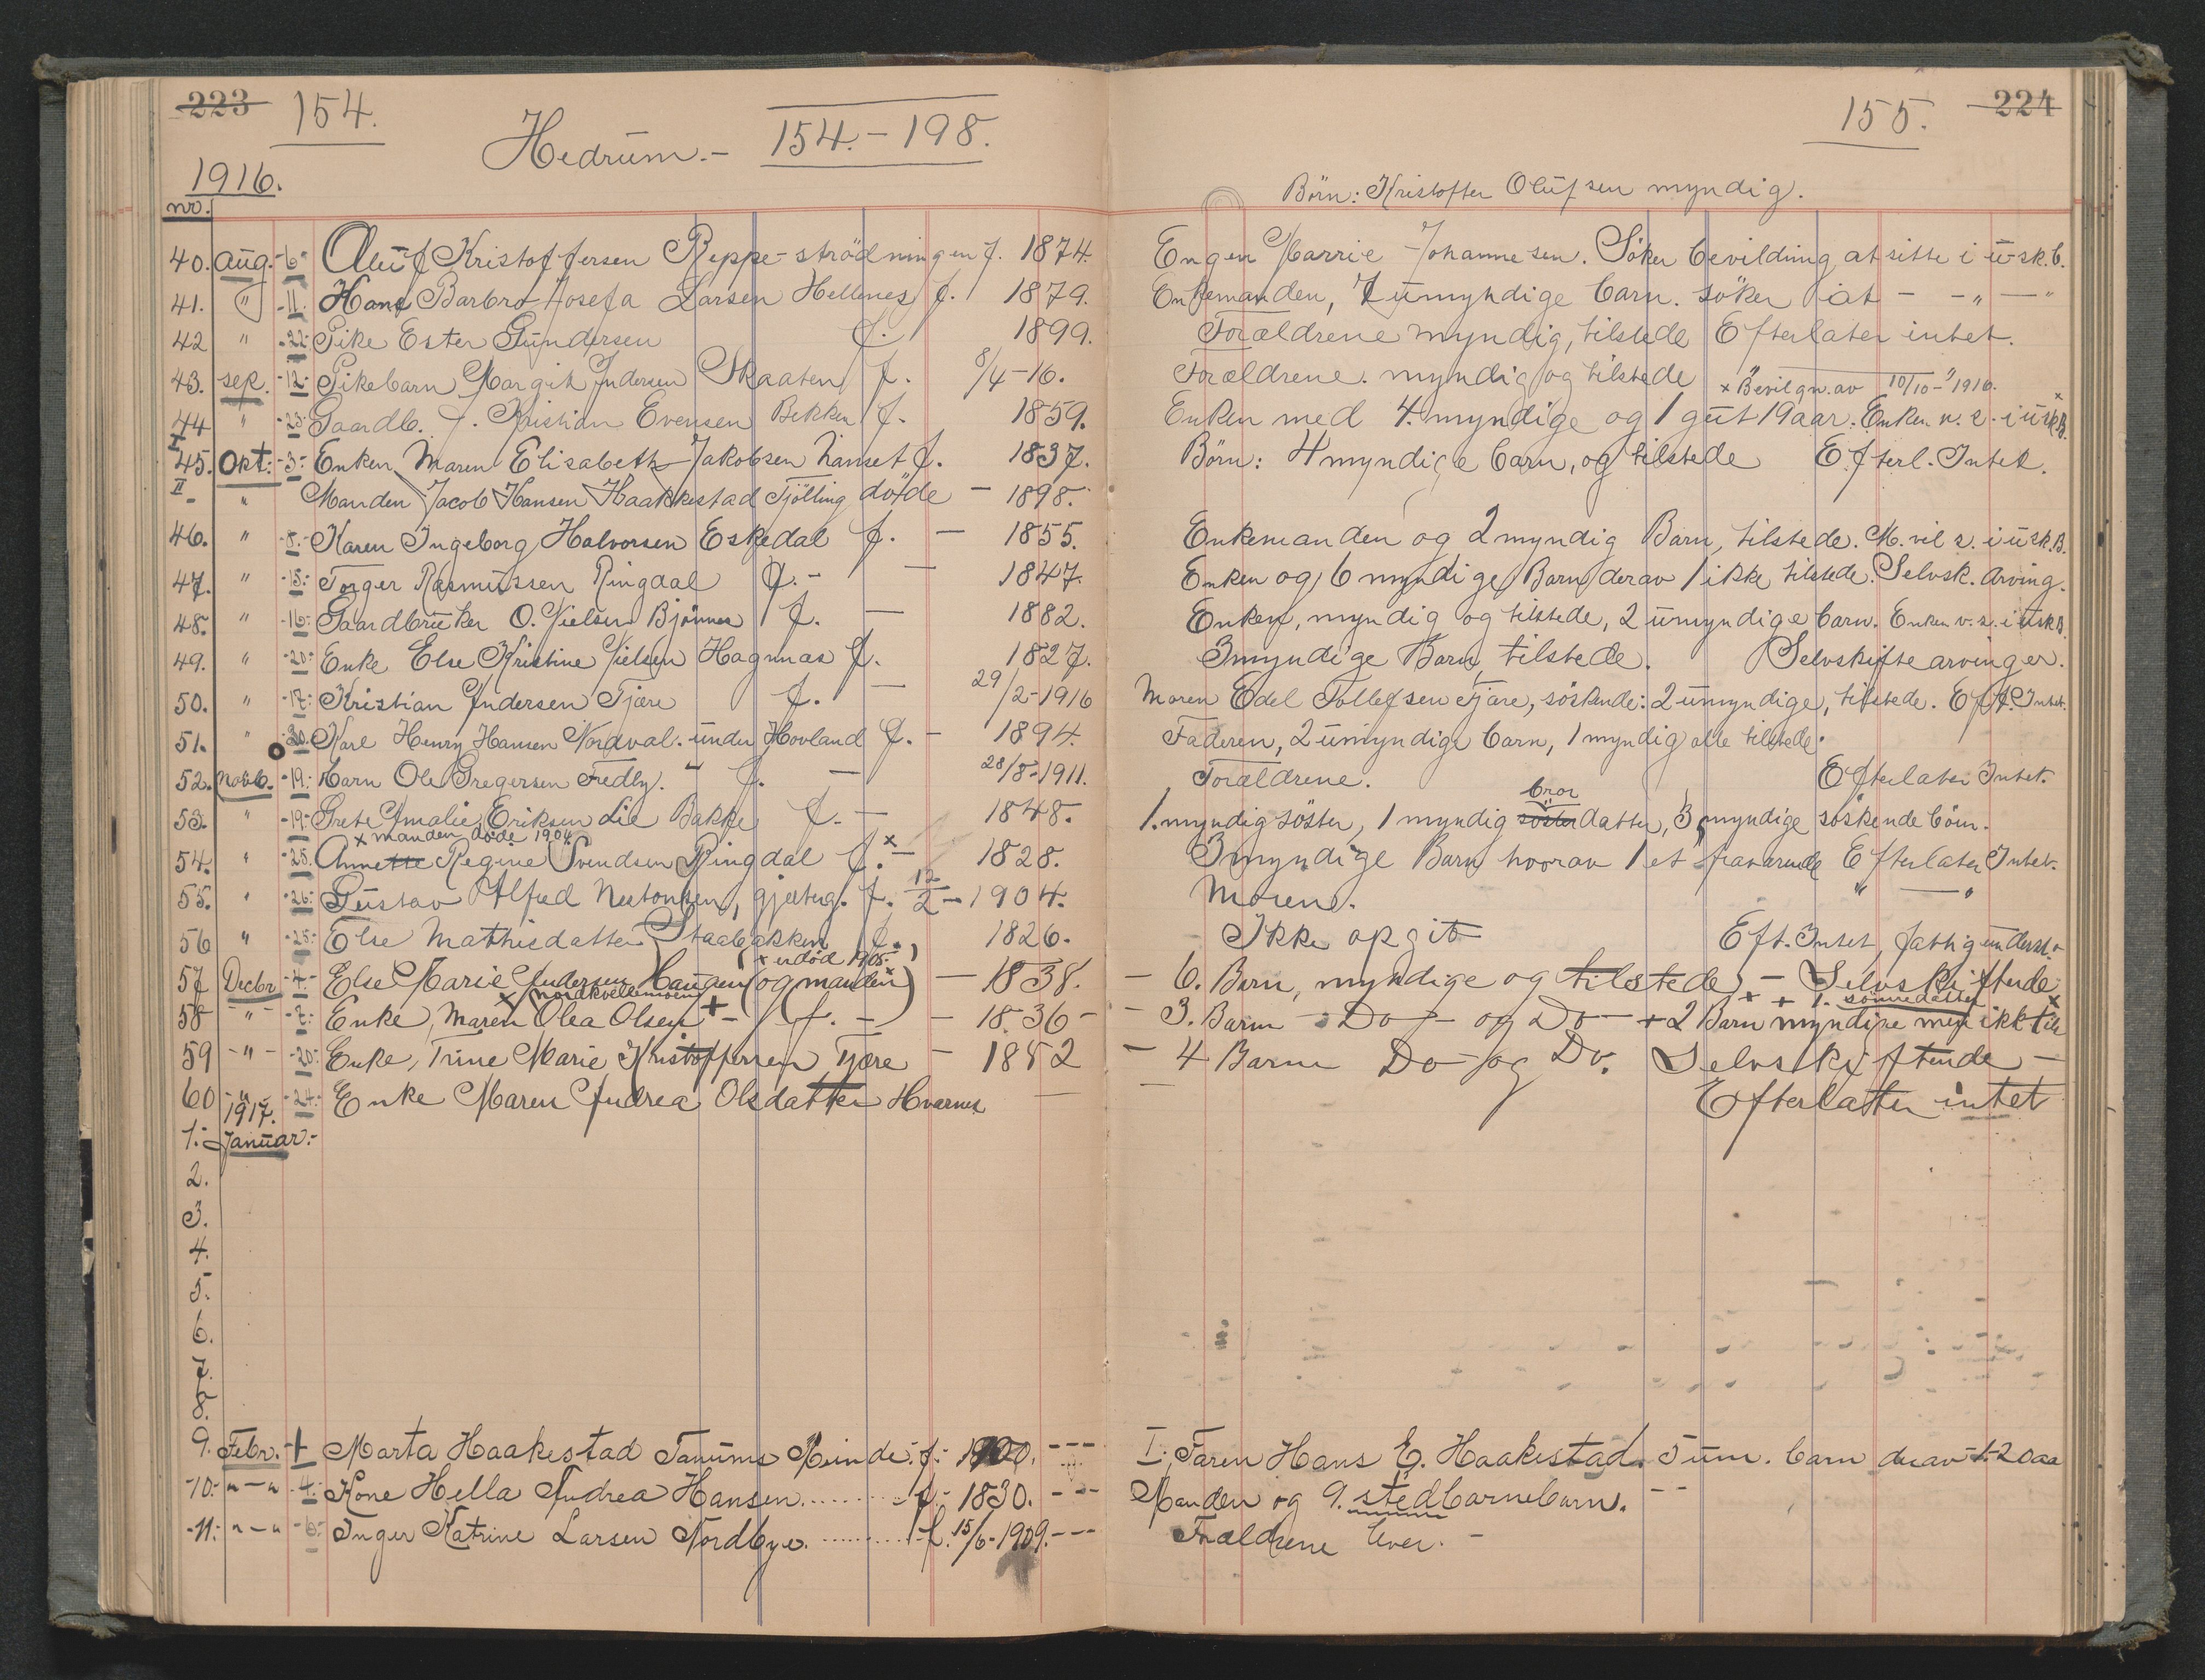 223 154.
Hedrum.- 154.-198.
1916.
nr.
40. Aug. -6- Oluf Kristoffersen Reppe-strödningen f. 1874.
41. " -11- Kone Barbro Josefa Larsen Hellenes f. 1879.
42 " -22- Pike Ester Gundersen f. 1899.
43. sep. -12- Pikebarn Margit Andersen Skaaten f. 8/4-16.
44 " -23- Gaardb. J. Kristian Evensen Bekken f. 1859.
I
45. Okt. -3- Enken Maren Elisabeth Jakobsen f. 1837.
II - " Manden Jacob Hansen Haakestad Tjölling döde - 1898.
46. " -8.- Karen Ingeborg Halvorsen Eskedal f. - 1855.
47. " -15- Torger Rasmussen Ringdal f. - - 1847.
48. " -16- Gaardbruker O. Nielsen Bjönnes f. - 1882.
49. " -20- Enke Else Kristine Nielsen Hagnnas f. 1827.
50. " -17- Kristian Andersen Tjære f. - 29/2-1916
51. " -30- Karl Henry Hansen Nordval. under Hovland f. - 1894.
52. Novb. -19- Barn Ole Gregersen Fredly. " f. - 28/8-1911.
53. " -19- Grete Amalie Eriksen Lie Bakke f. - 1848.
x manden döde 1904
54. " -25. Annette Regine Svendsen Ringdal f. x - 1828.
55. " -26- Gustav Alfred Neutonsen, gjæterg. f. 12/2-1904.
56 " -25- Else Mathisdatter Staalbakken f. 1826.
x erdöd 1905.
57 Decbr -4- Else Marie Andersen Haugen (og manden x) - 1838.
Nordkvellemoen
58 -"- -7- Enke, Maren Olea Olsen + - f. - - 1836 -
59 -"- -20- Enke, Trine Marie Kristoffersen Tjære - 1852
60 -"- -24- Enke Maren Andrea Olsdatter Hvarnes -
1917.
1.- Januar.-
2.
3.
4.
5.
6.
7.
8.
9. Febr. -1 Marta Haakestad Tanums Minde. f. 1900. ---
-10.- "-" -4- Kone Hella Andrea Hansen.......... f. 1830. ---
-11.- "-" -6- Inger Katrine Larsen Nordbye. .......... f. 15/6-1909. ---
155. 224
Börn: Kristoffer Olufsen myndig.
Enken Marrie Johannesen. Söker bevildning at sitte i u-sk.b.
Enkemanden, 7 umyndige barn. söker iat - -"- -"
Forældrene myndig, tilstede Efterlater intet.
Forældrene. myndig og tilstede x Bevilgn. av 10/10-1916. x
Enken med 4. myndige og 1 gut 19 aar. Enken v. s. i usk B.
Börn: 4 myndige barn, og tilstede Efterl. Intet.
Enkemanden og 2 myndig Barn, tilstede. M. vil s. i usk. B.
Enken og 6 myndige Barn derav 1 ikke tilstede. Selvsk. arving.
Enken, myndig og tilstede, 2 umyndige barn. Enken v. s. i usk B.
3 myndige Barn tilstede. Selvskiftearvinger.
Maren Edel Tollefsen Tjære, söskende: 2 umyndige, tilstede. Eft. Intet.
Faderen, 2 umyndige barn, 1 myndig alle tilstede.
Forældrene. Efterlater Intet.
bror
1. myndig söster, 1 myndig söster datter, 3 myndige söskendebörn.
3 myndige Barn hvorav 1 et fraværende Efterlater Intet.
Moren. " - "
Ikke opgit Eft. Intet, fattigunderst.
- 6. Barn, myndige og tilstede, - Selvskiftende
x + 1. sönnedatter x
- 3. Barn - Do - og Do - + 2 Barn myndige men ikk til
- 4 Barn Do og Do. Selvskiftende -
- Efterlatter intet
I: Faren Hans E. Haakestad. 5 um. barn derav 1-20 aa
Manden og 9. stedbarnebarn. --
Foreldrene lever. -